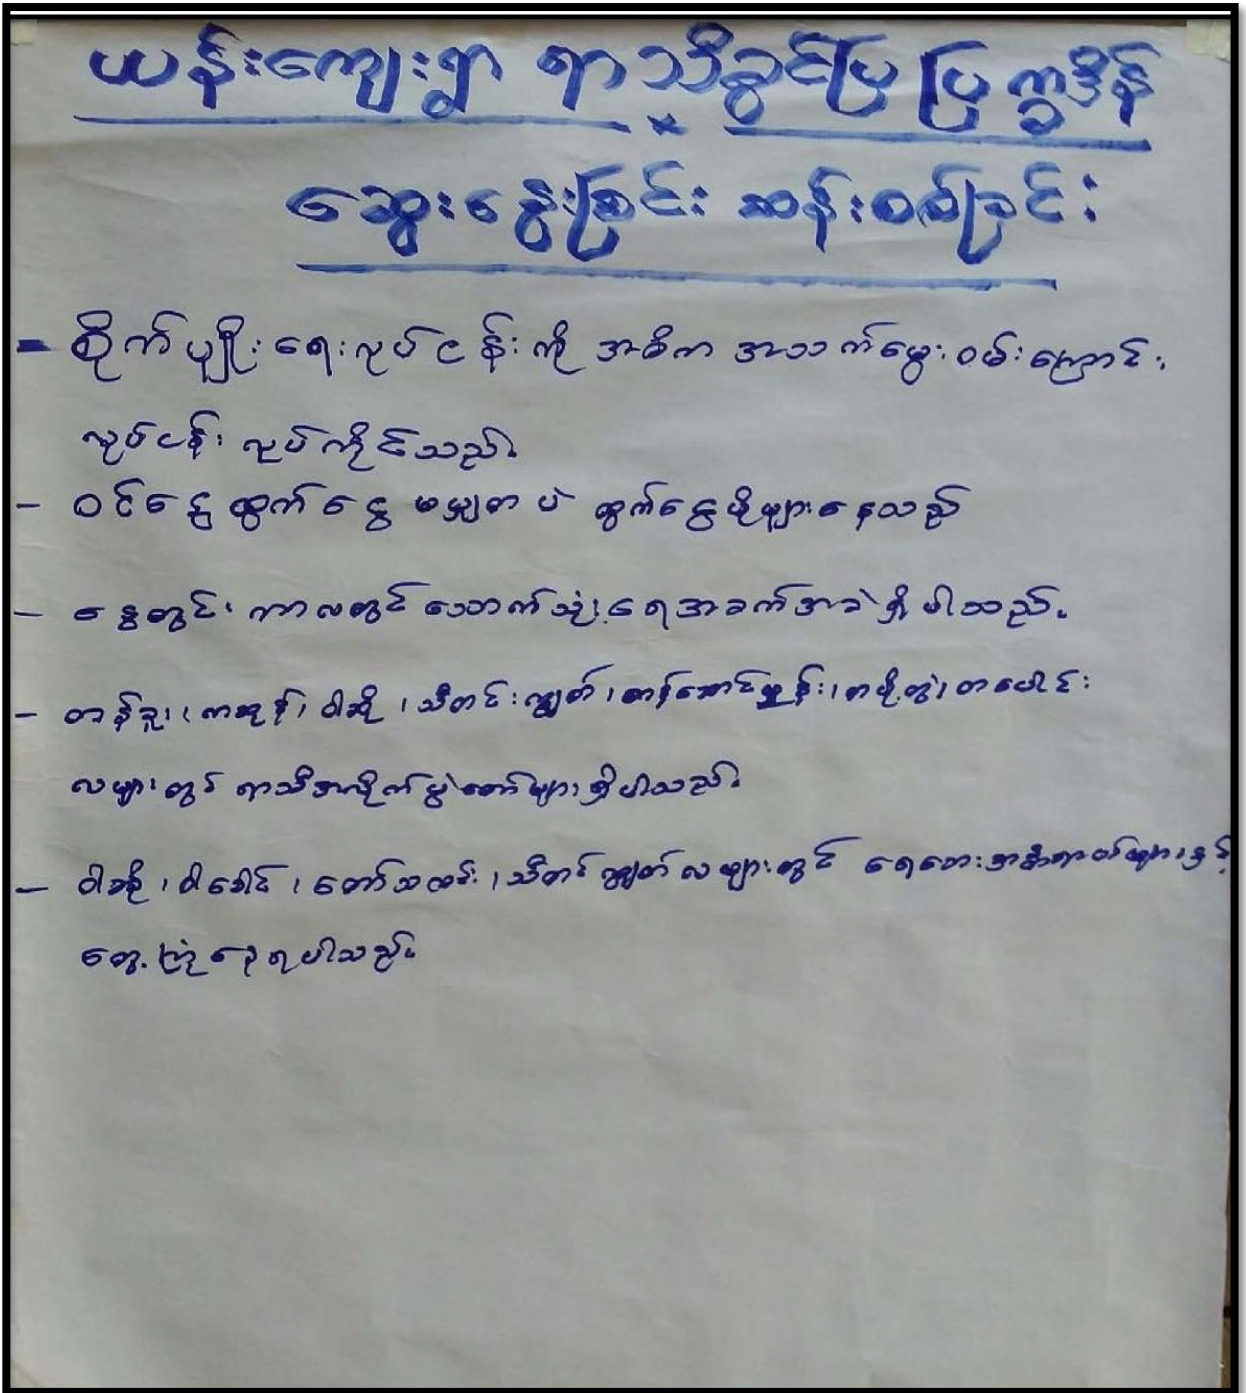 ယန်းကျေးရွာ ရာသီခွင်ပြ ပြက္ခဒိန်
ဆွေးနွေးခြင်း ဆန်းစစ်ခြင်း
- စိုက်ပျိုးရေးလုပ်ငန်းကို အဓိက အသက်မွေးဝမ်းကြောင်း
လုပ်ငန်း လုပ်ကိုင်သည်။
- ဝင်ငွေထွက်ငွေ မမျှတပဲ ထွက်ငွေပိုများနေသည်
- နွေတွင်း ကာလတွင် သောက်သုံးရေအခက်အခဲရှိပါသည်။
- တန်ခူး၊ ကဆုန်၊ ဝါဆို၊ သီတင်းကျွတ်၊ တန်ဆောင်မုန်း၊ တပို့တွဲ၊ တပေါင်း
လများတွင် ရာသီအလိုက်ပွဲတော်များရှိပါသည်။
- ဝါဆို၊ ဝါခေါင်၊ တော်သလင်း၊ သီတင်းကျွတ်လများတွင် ရေဘေးအန္တရာယ်များနှင့်
တွေ့ကြုံနေရပါသည်။